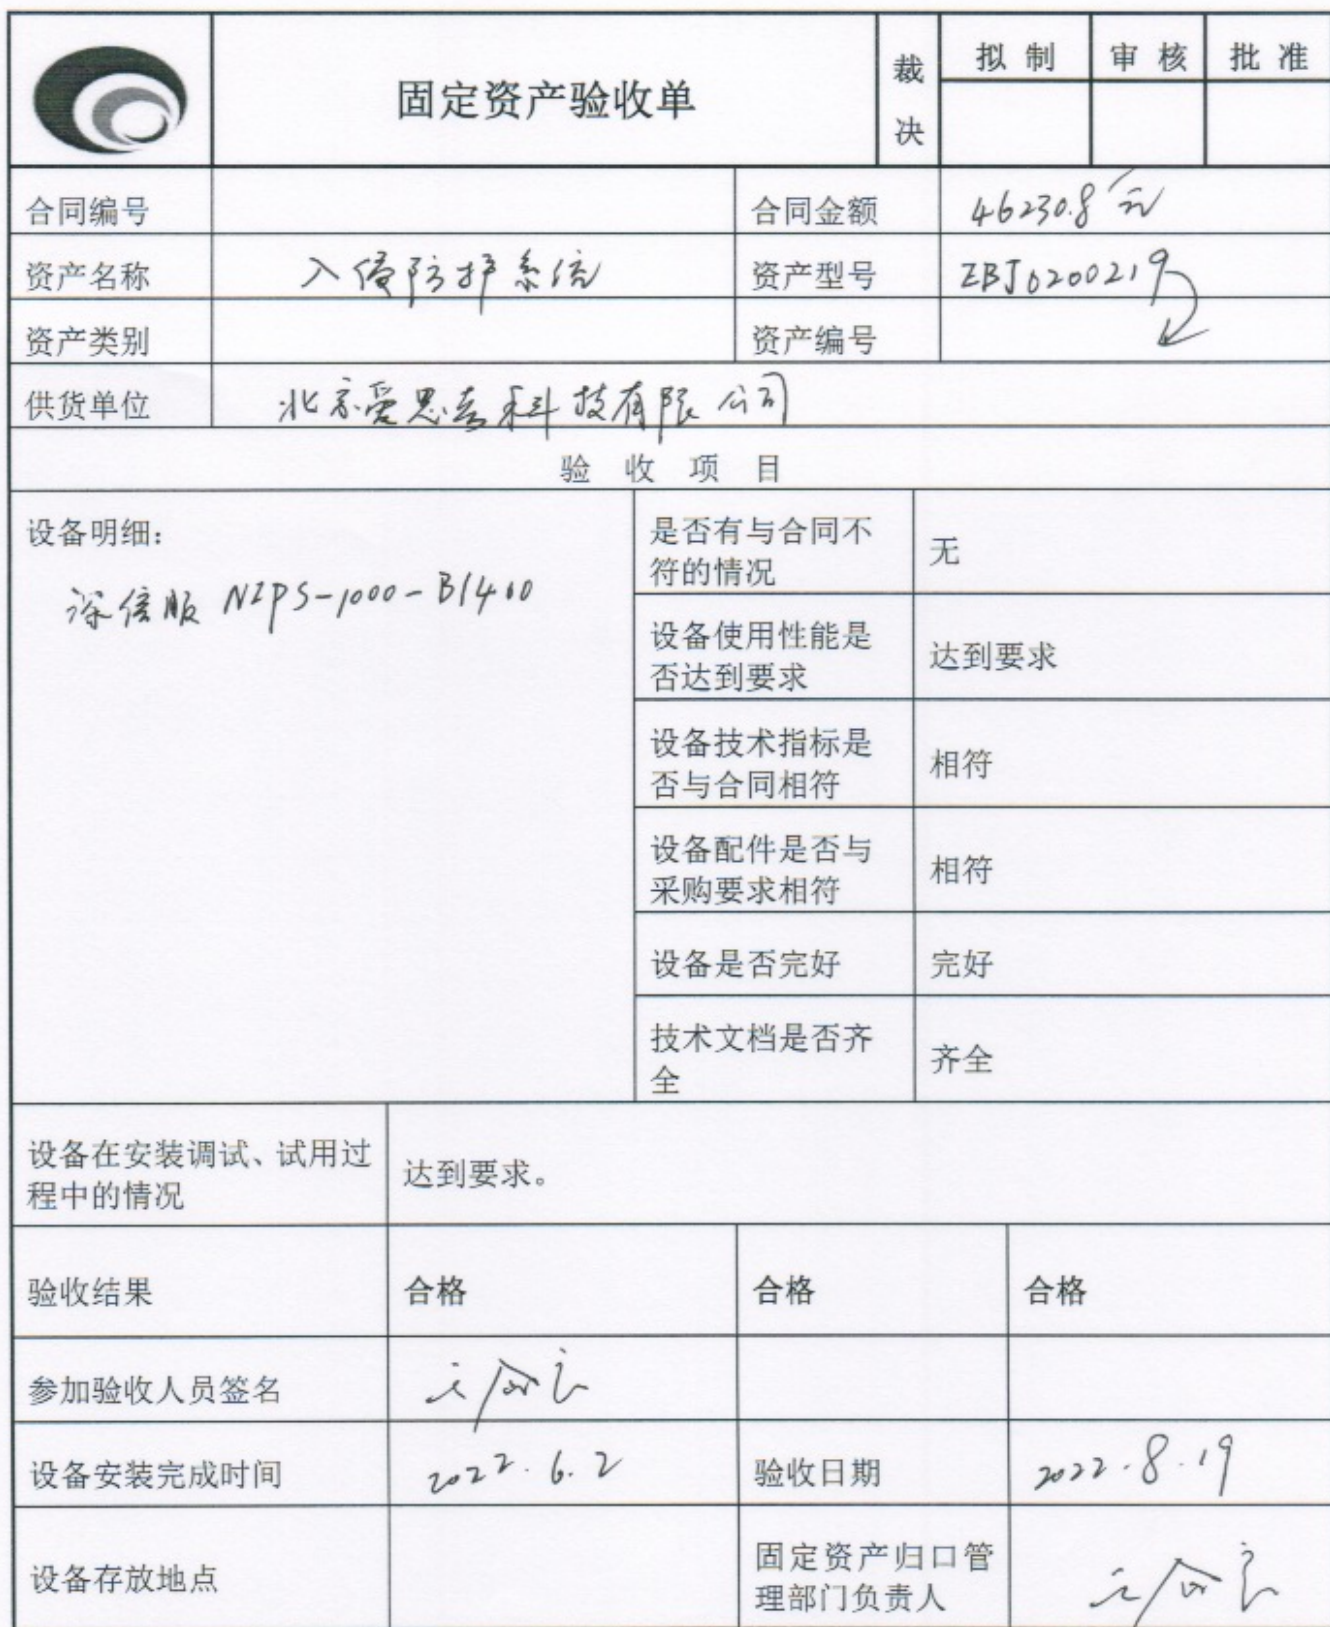 固定资产验收单
裁决
拟制 审核 批准
合同编号 合同金额 46230.8元
资产名称 入侵防护系统 资产型号 ZBJ0200219
资产类别 资产编号
供货单位 北京爱思吉科技有限公司
验收项目
设备明细:
深信服 NIPS-1000-B1400
是否有与合同不
符的情况
无
设备使用性能是
否达到要求
达到要求
设备技术指标是
否与合同相符
相符
设备配件是否与
采购要求相符
相符
设备是否完好 完好
技术文档是否齐
全
齐全
设备在安装调试、试用过
程中的情况
达到要求。
验收结果 合格 合格 合格
参加验收人员签名
设备安装完成时间 2022.6.2 验收日期 2022.8.19
设备存放地点
固定资产归口管
理部门负责人